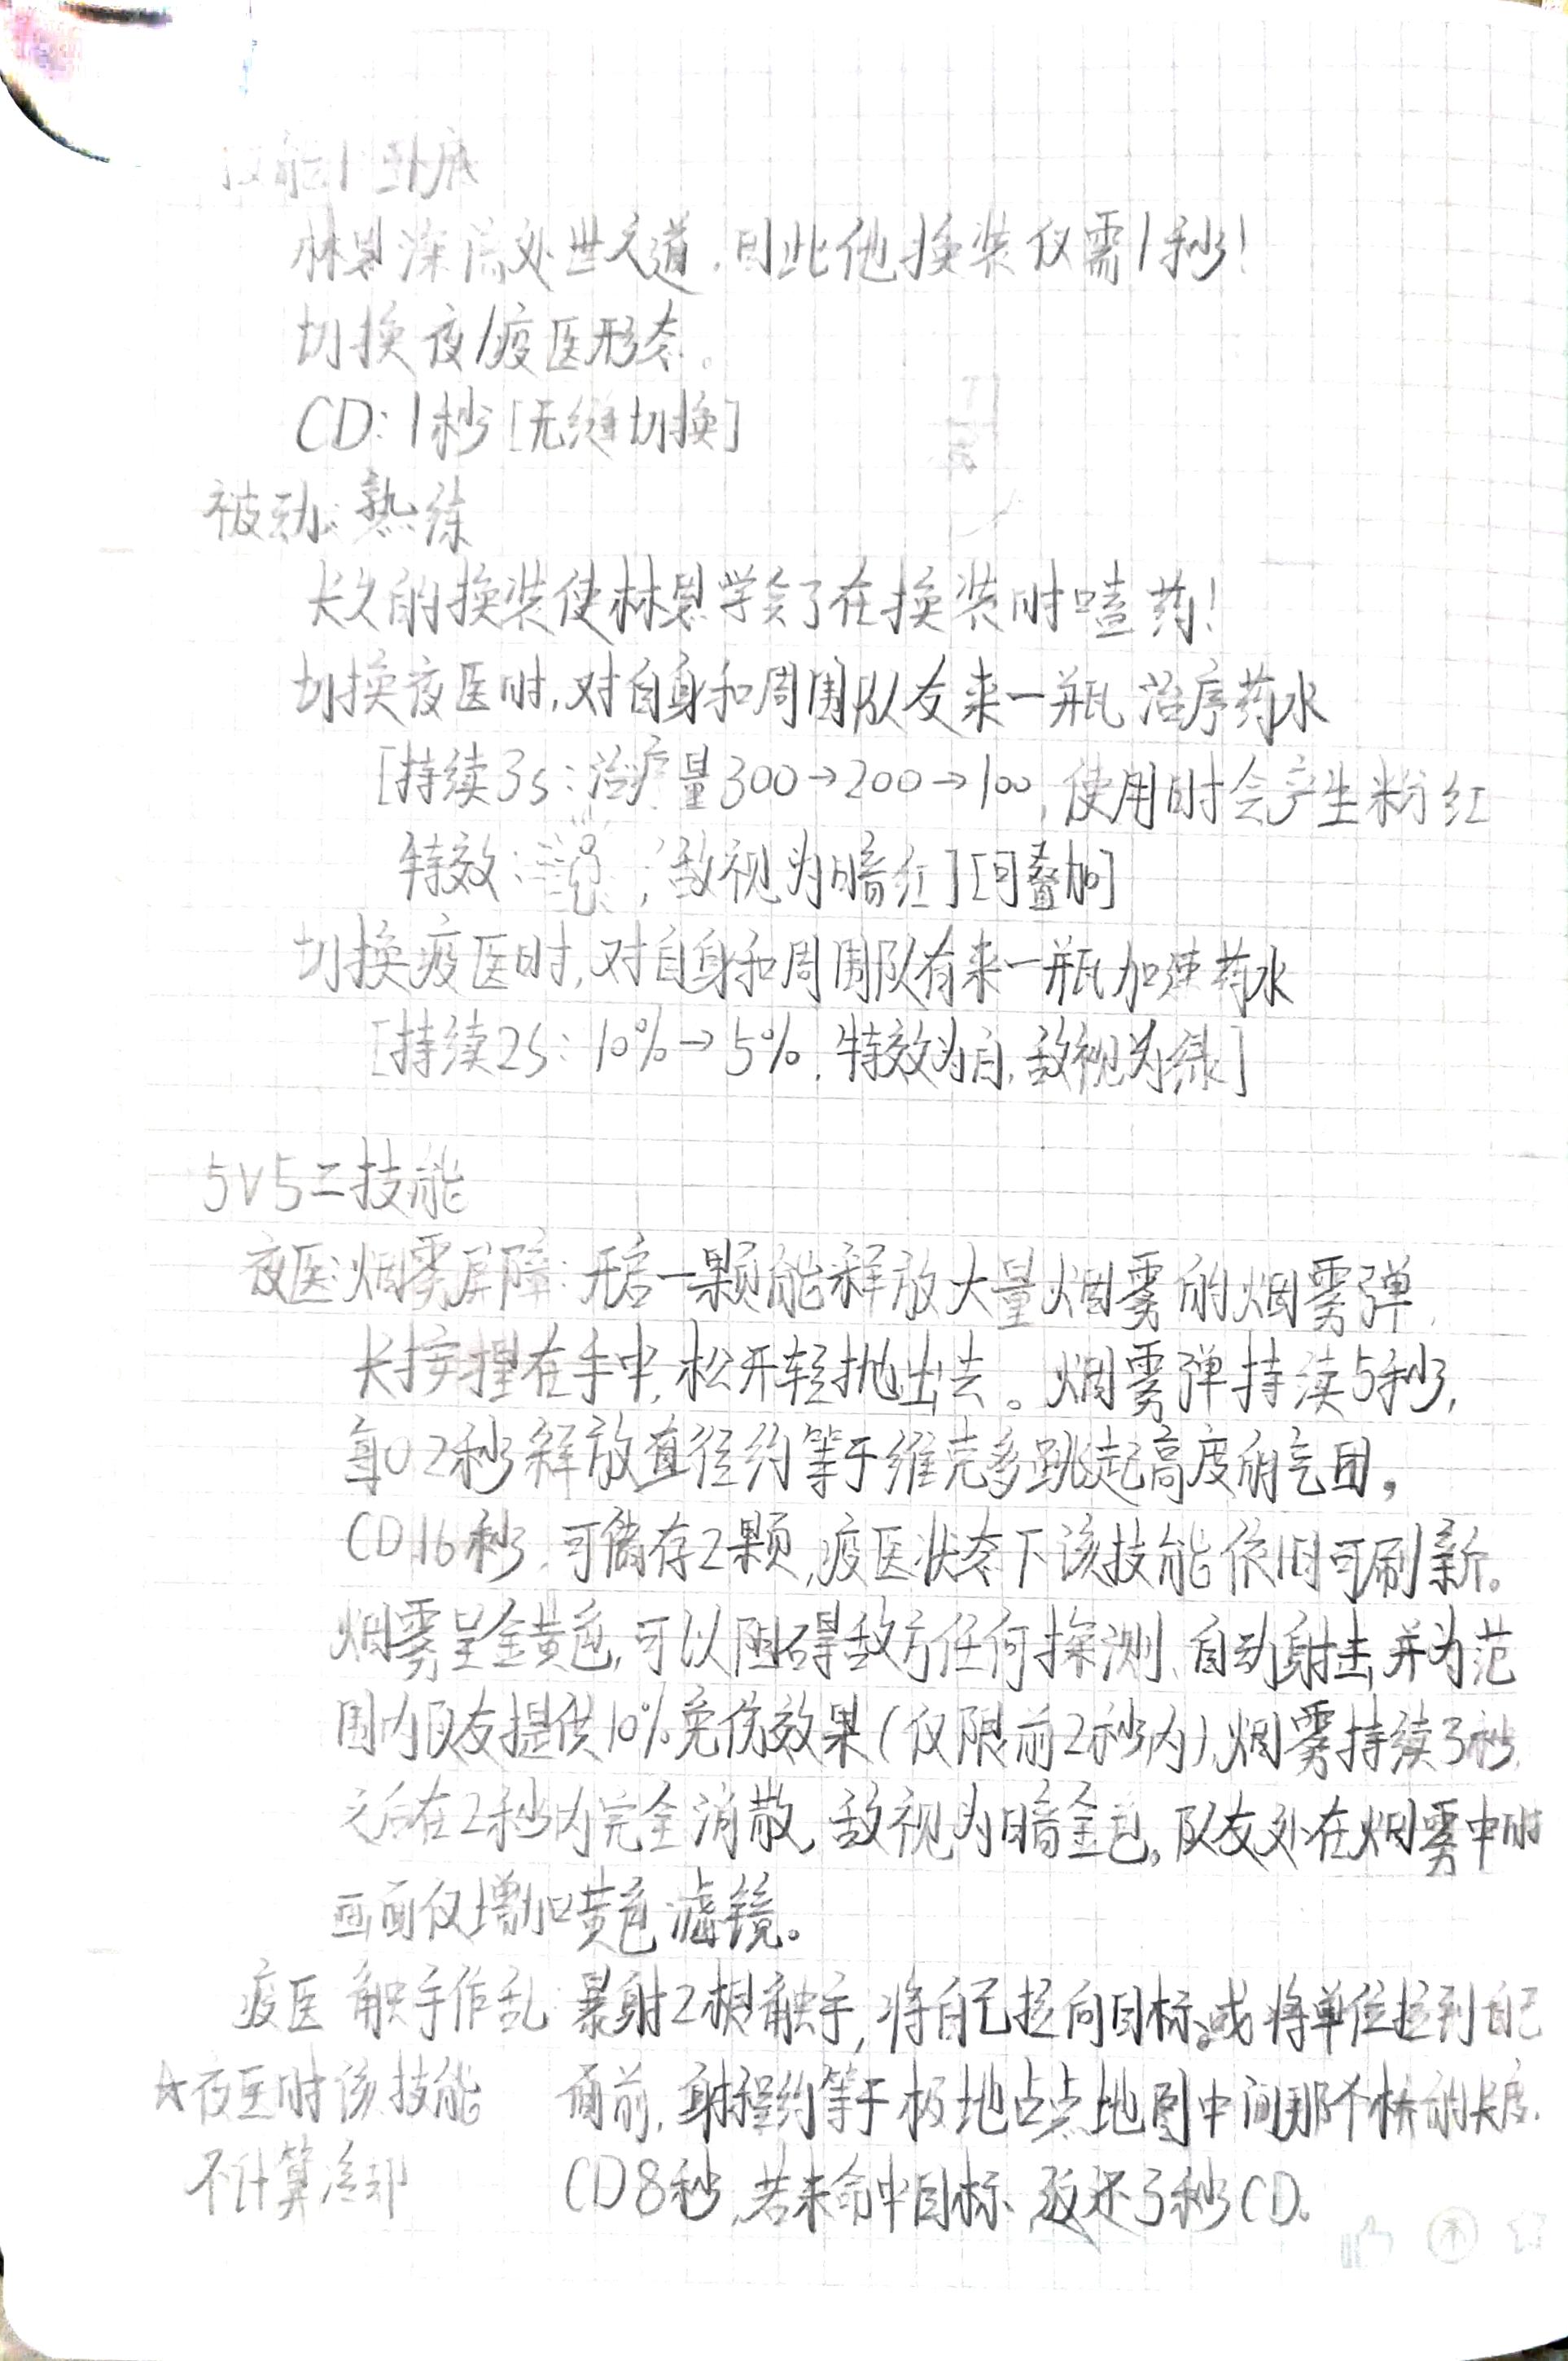 技能1 卧底
林恩深谙处世之道,因此他换装仅需1秒!
切换夜/疫医形态。
CD:1秒[无缝切换]
被动:熟练
长久的换装使林恩学会了在换装时嗑药!
切换夜医时,对自身和周围队友来一瓶治疗药水
[持续3s:治疗量300→200→100,使用时会产生粉红
特效: ;敌视为暗红][可叠加]
切换疫医时,对自身和周围队有来一瓶加速药水
[持续2s:10%→5%,特效为白,敌视为绿]
5V5二技能
夜医:烟雾屏障:开启一颗能释放大量烟雾的烟雾弹,
长按握在手中,松开轻抛出去。烟雾弹持续5秒,
每0.2秒释放直径约等于维克多跳起高度的气团,
CD16秒,可储存2颗,疫医状态下该技能依旧可刷新。
烟雾呈金黄色,可以阻碍敌方任何探测、自动射击,并为范
围内队友提供10%免伤效果(仅限前2秒内),烟雾持续3秒,
之后在2秒内完全消散,敌视为暗金色。队友处在烟雾中时
画面仅增加黄色滤镜。
疫医 触手作乱 暴射2根触手,将自己拉向目标,或将单位拉到自己
☆夜医时该技能 面前,射程约等于极地占点地图中间那个桥的长度,
不计算冷却 CD8秒,若未命中目标、返还3秒CD。